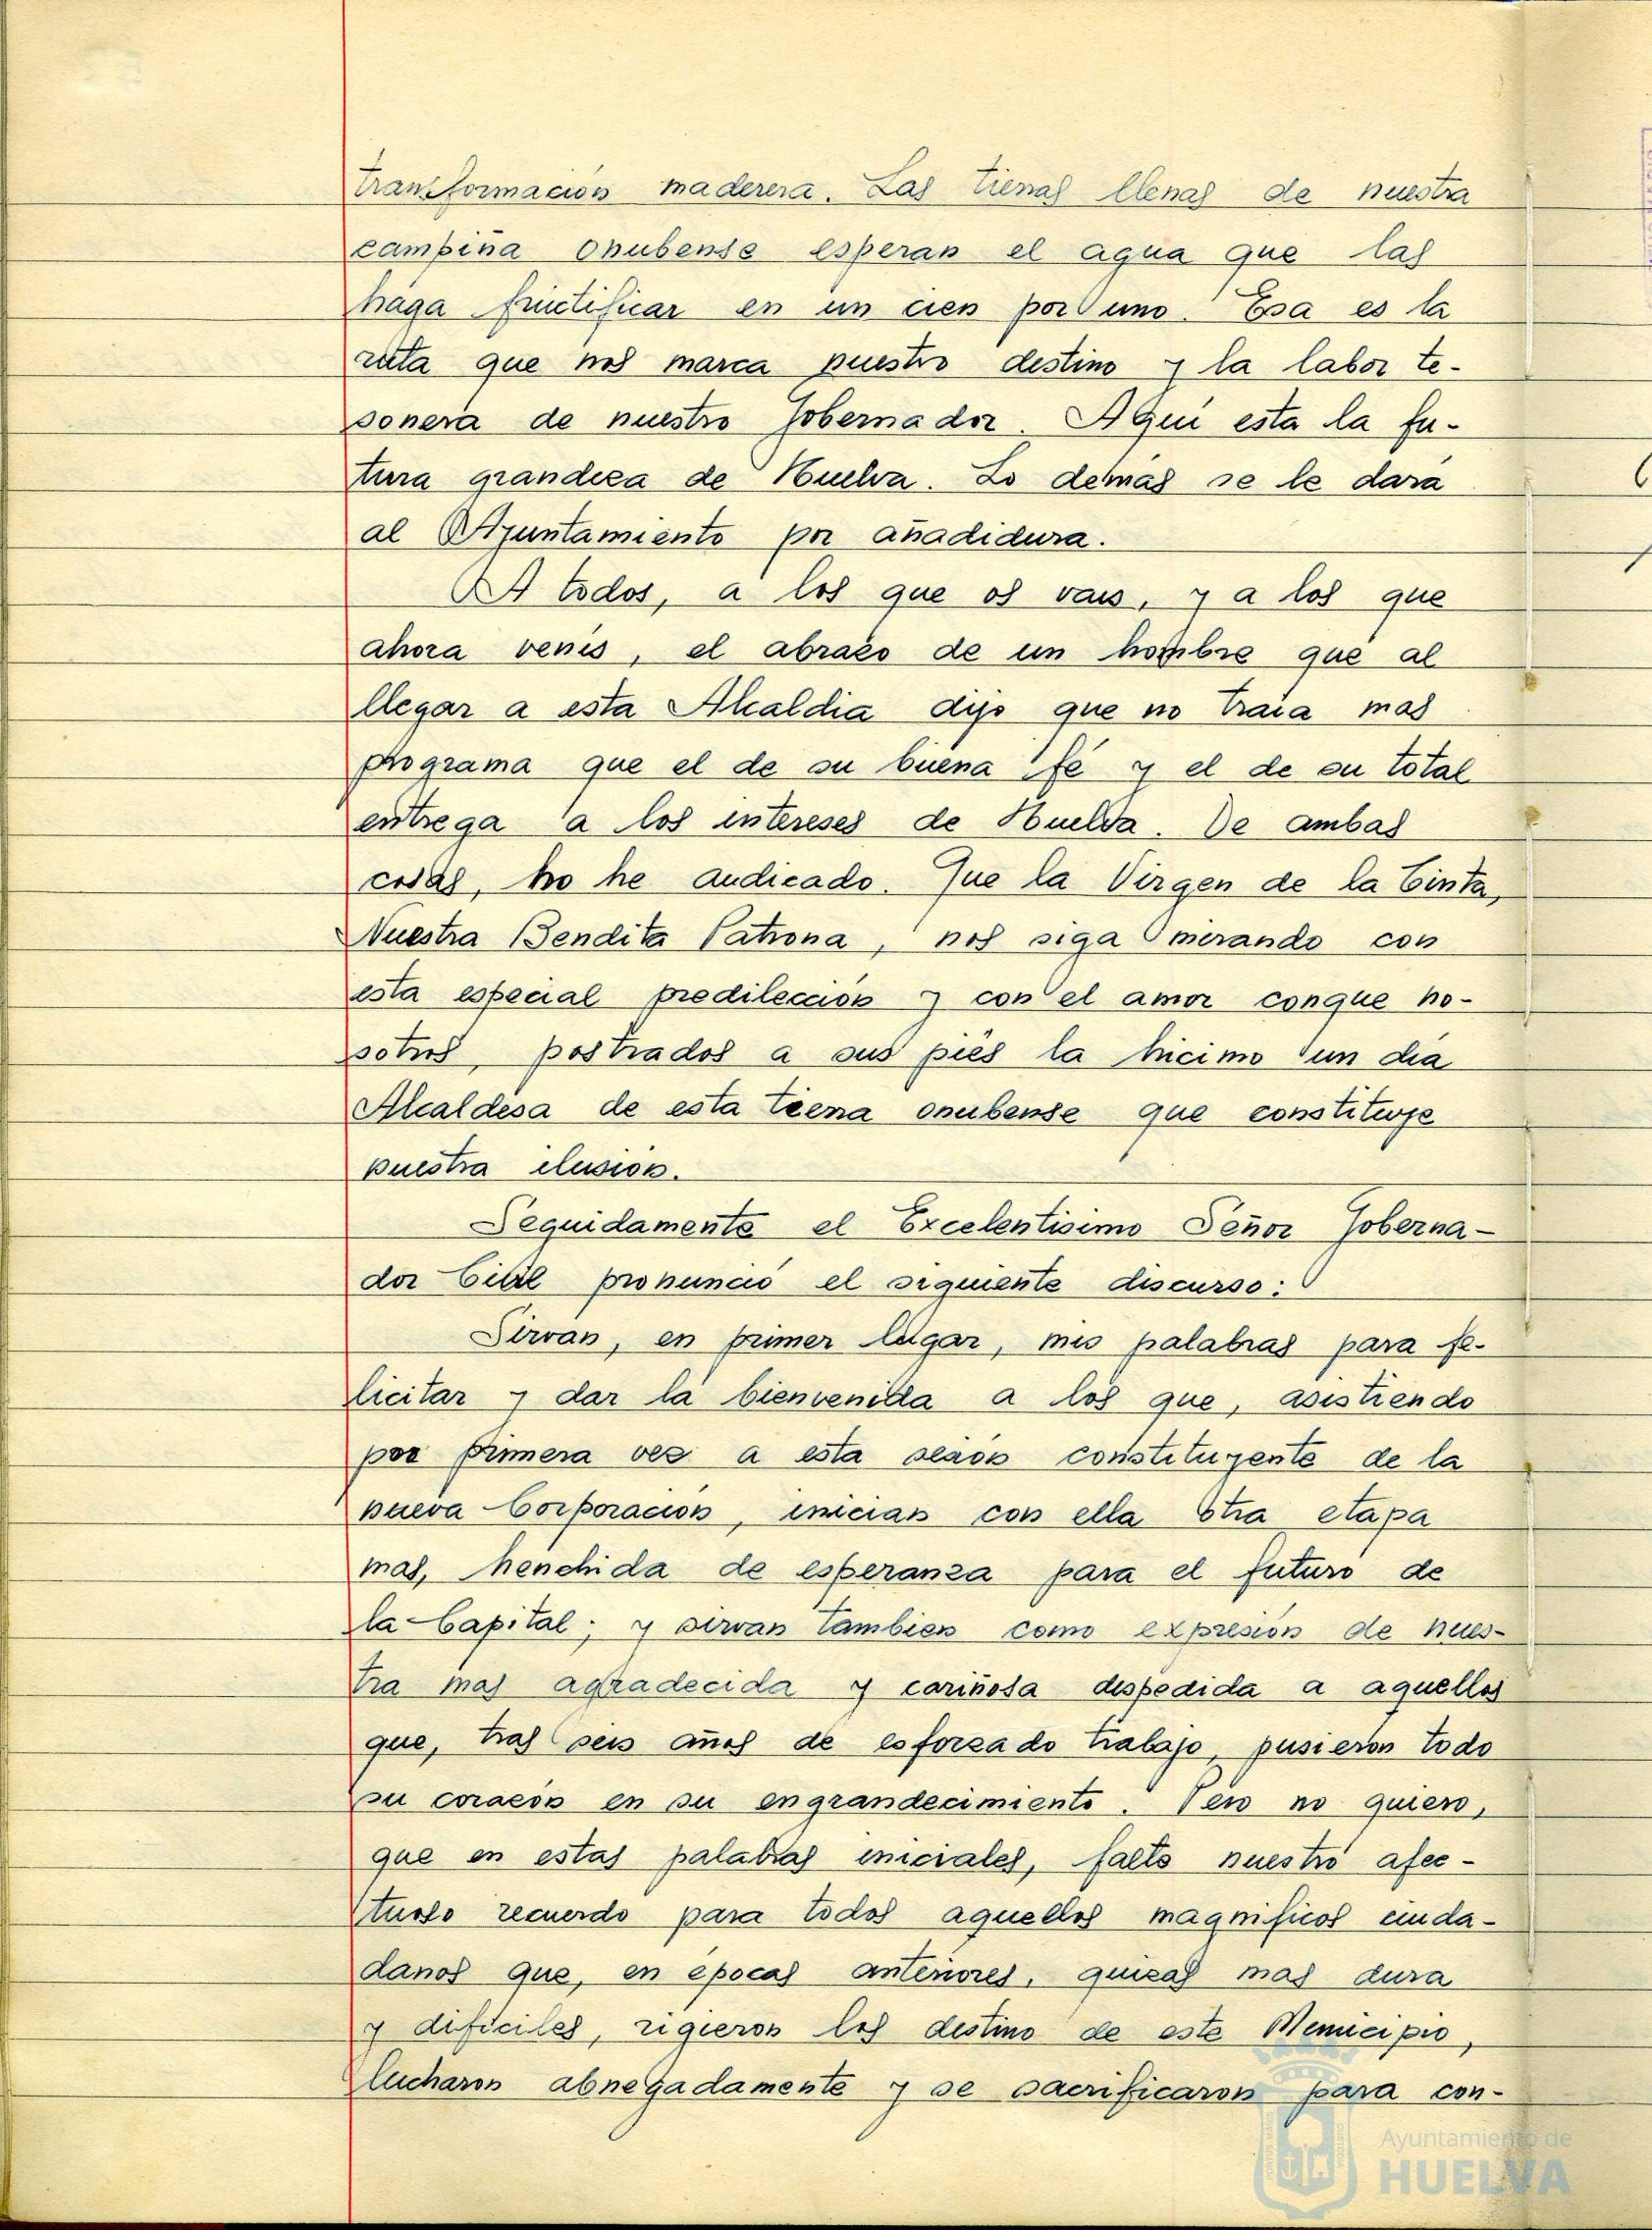 transformación maderera. Las tierras llenas de nuestra
campiña onubense esperan el agua que las
haga fructificar en un cien por uno. Esa es la
ruta que nos marca nuestro destino y la labor te-
sonera de nuestro Gobernador. Aqui esta la fu-
tura grandeza de Huelva. Lo demás se le dará
al Ayuntamiento por añadidura.
A todos, a los que os vais, y a los que
ahora venis, el abrazo de un hombre que al
llegar a esta Alcaldia dijo que no traia mas
programa que el de su buena fé y el de su total
entrega a los intereses de Huelva. De ambas
cosas, no he audicado. Que la Virgen de la Cinta,
Nuestra Bendita Patrona, nos siga mirando con
esta especial predilección y con el amor conque no-
sotros, postrados a sus piés la hicimo un dia
Alcaldesa de esta tierra onubense que constituye
nuestra ilusión.
Seguidamente el Excelentisimo Señor Goberna-
dor Civil pronunció el siguiente discurso:
Sirvan, en primer lugar, mis palabras para fe-
licitar y dar la bienvenida a los que, asistiendo
por primera vez a esta sesión constituyente de la
nueva Corporación, inician con ella otra etapa
mas, henchida de esperanza para el futuro de
la Capital; y sirvan tambien como expresión de nues-
tra mas agradecida y cariñosa despedida a aquellos
que, tras seis años de esforzado trabajo, pusieron todo
su corazón en su engrandecimiento. Pero no quiero,
que en estas palabras iniciales, falte nuestro afec-
tuoso recuerdo para todos aquellos magnificos ciuda-
danos que, en épocas anteriores, quizas mas dura
y dificiles, rigieron los destino de este Municipio,
lucharon abnegadamente y se sacrificaron para con-
Ayuntamiento de
HUELVA